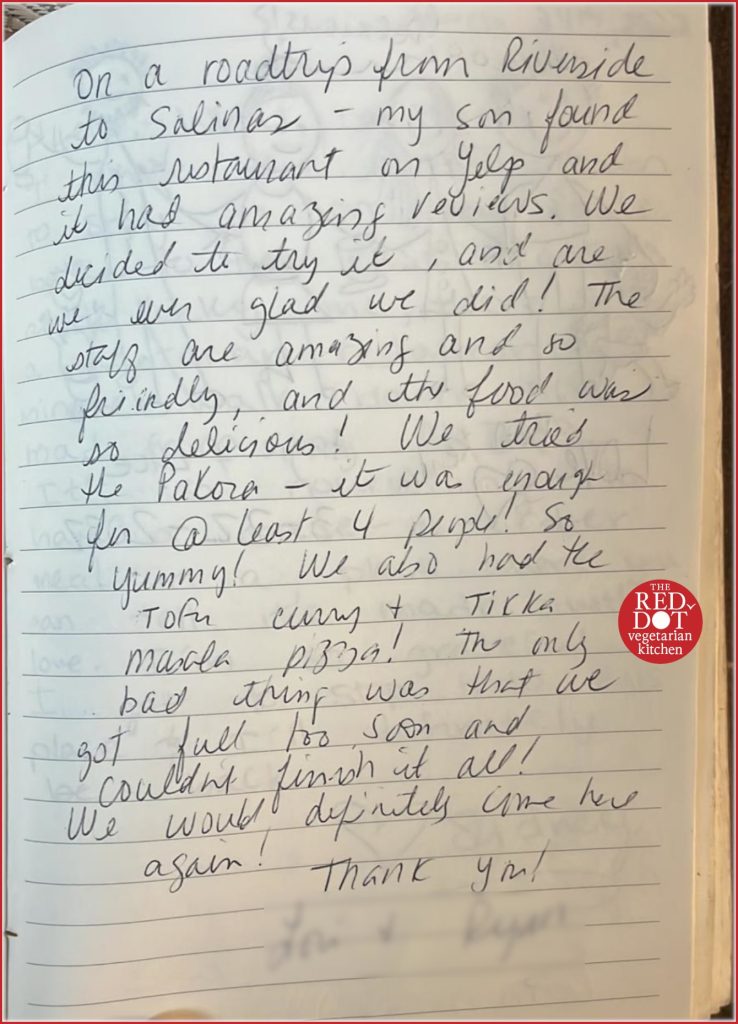 On a roadtrip from Riverside
to Salinas - my son found
this restaurant on Yelp and
it had amazing reviews. We
decided to try it, and are
we ever glad we did! The
staff are amazing and so
friendly, and the food was
so delicious! We tried
the Pakora - it was enough
for @ least 4 people! So
yummy! We also had the
Tofu curry + Tikka
masala pizza! The only
bad thing was that we
got full too soon and
couldnt finish it all!
We would definitely come here
again!
Thank you!
THE
RED
DOT
vegetarian
kitchen